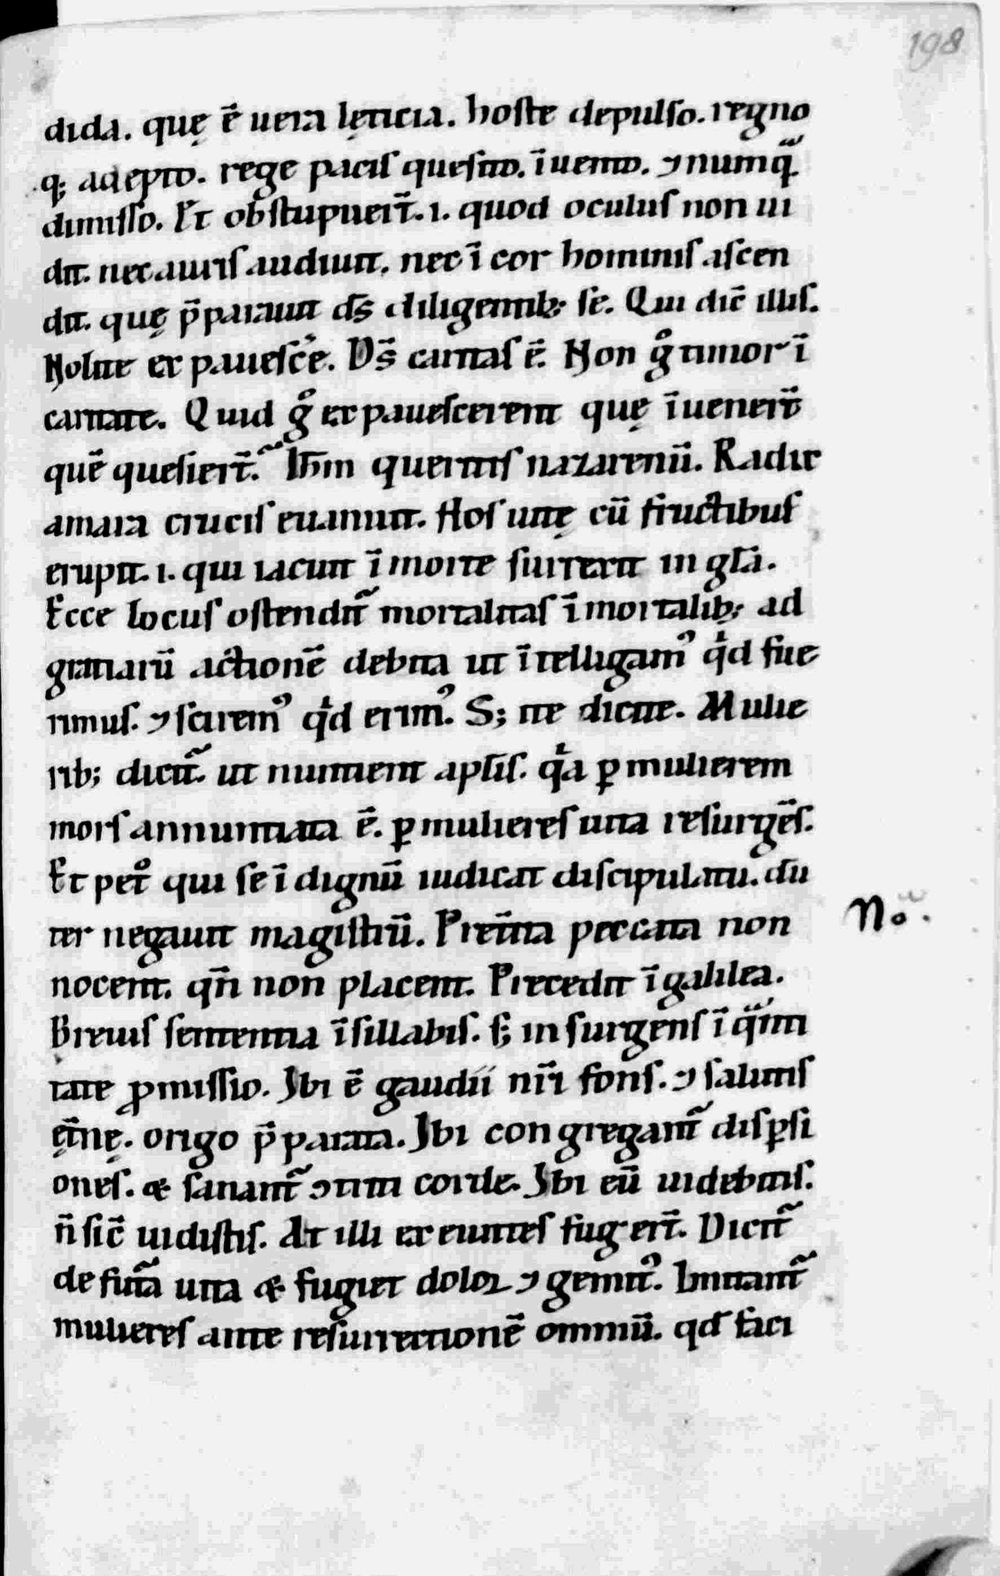 198
dida. quę ē uera lęticia. hoste depulso. regno
q; adepto. rege pacis quesito. īuento. ⁊ numqͣ
dimisso. Et obstupuert̄. ı. quod oculus non ui
dit. nec auris audiuit. nec ī cor hominis ascen
dit. quę p̄parauit ds̄ diligentib; se. Qui dic̄ illis.
Nolite expauesc̄e. Ds̄ caritas ē. Non gͦ timor ī
caritate. Quid gͦ expauescerent quę īuenert̄
quē quesiert̄. Ih̄m queritis nazarenū. Radix
amara crucis euanuit. flos uitę cū fructibus
erupit. ı. qui iacuit ī morte surrexit in gl̄a.
Ecce locus ostendit̄ mortalitas īmortalib; ad
gratiarū actionē debita ut ītelligamꝰ qͥd fue
rimus. ⁊ sciremꝰ qͥd erimꝰ. S; ite dicite. Mulie
rib; dicit̄. ut nuntient apl̄is. qͥa ꝑ mulierem
mors annuntiata ē. ꝑ mulieres uita resurgēs.
Et petͦ qui se īdignū iudicat discipulatu. dū
ter negauit magistrū. Pret̄ita peccata non
Noͣ.
nocent. qn̄ non placent. Precedit ī galilea.
Breuis sententia ī sillabis. s; insurgens ī qͣnti
tate ꝓmissio. Ibi ē gaudii nr̄i fons. ⁊ salutis
ęt̄nę. origo p̄parata. Ibi congregant̄ disꝑsi
ones. & sanant̄ ɔtriti corde. Ibi eū uidebitis.
n̄ sic̄ uidistis. At illi exeuntes fugert̄. Dicit̄
de futͣa uita & fugiet dolor ⁊ gemitꝰ. Imitant̄
mulieres ante resurrectionē omniū. qd̄ faci